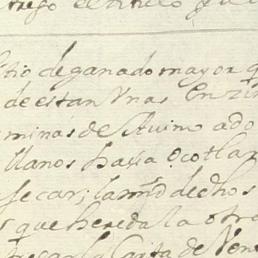 el titulo
sitio de ganado mayor q
de estan Unas Enzin
minas de Avino ado
llanos hasia Ocotlan
secar; la mrd de dhos
s que hereda la otra
Carta de Ven